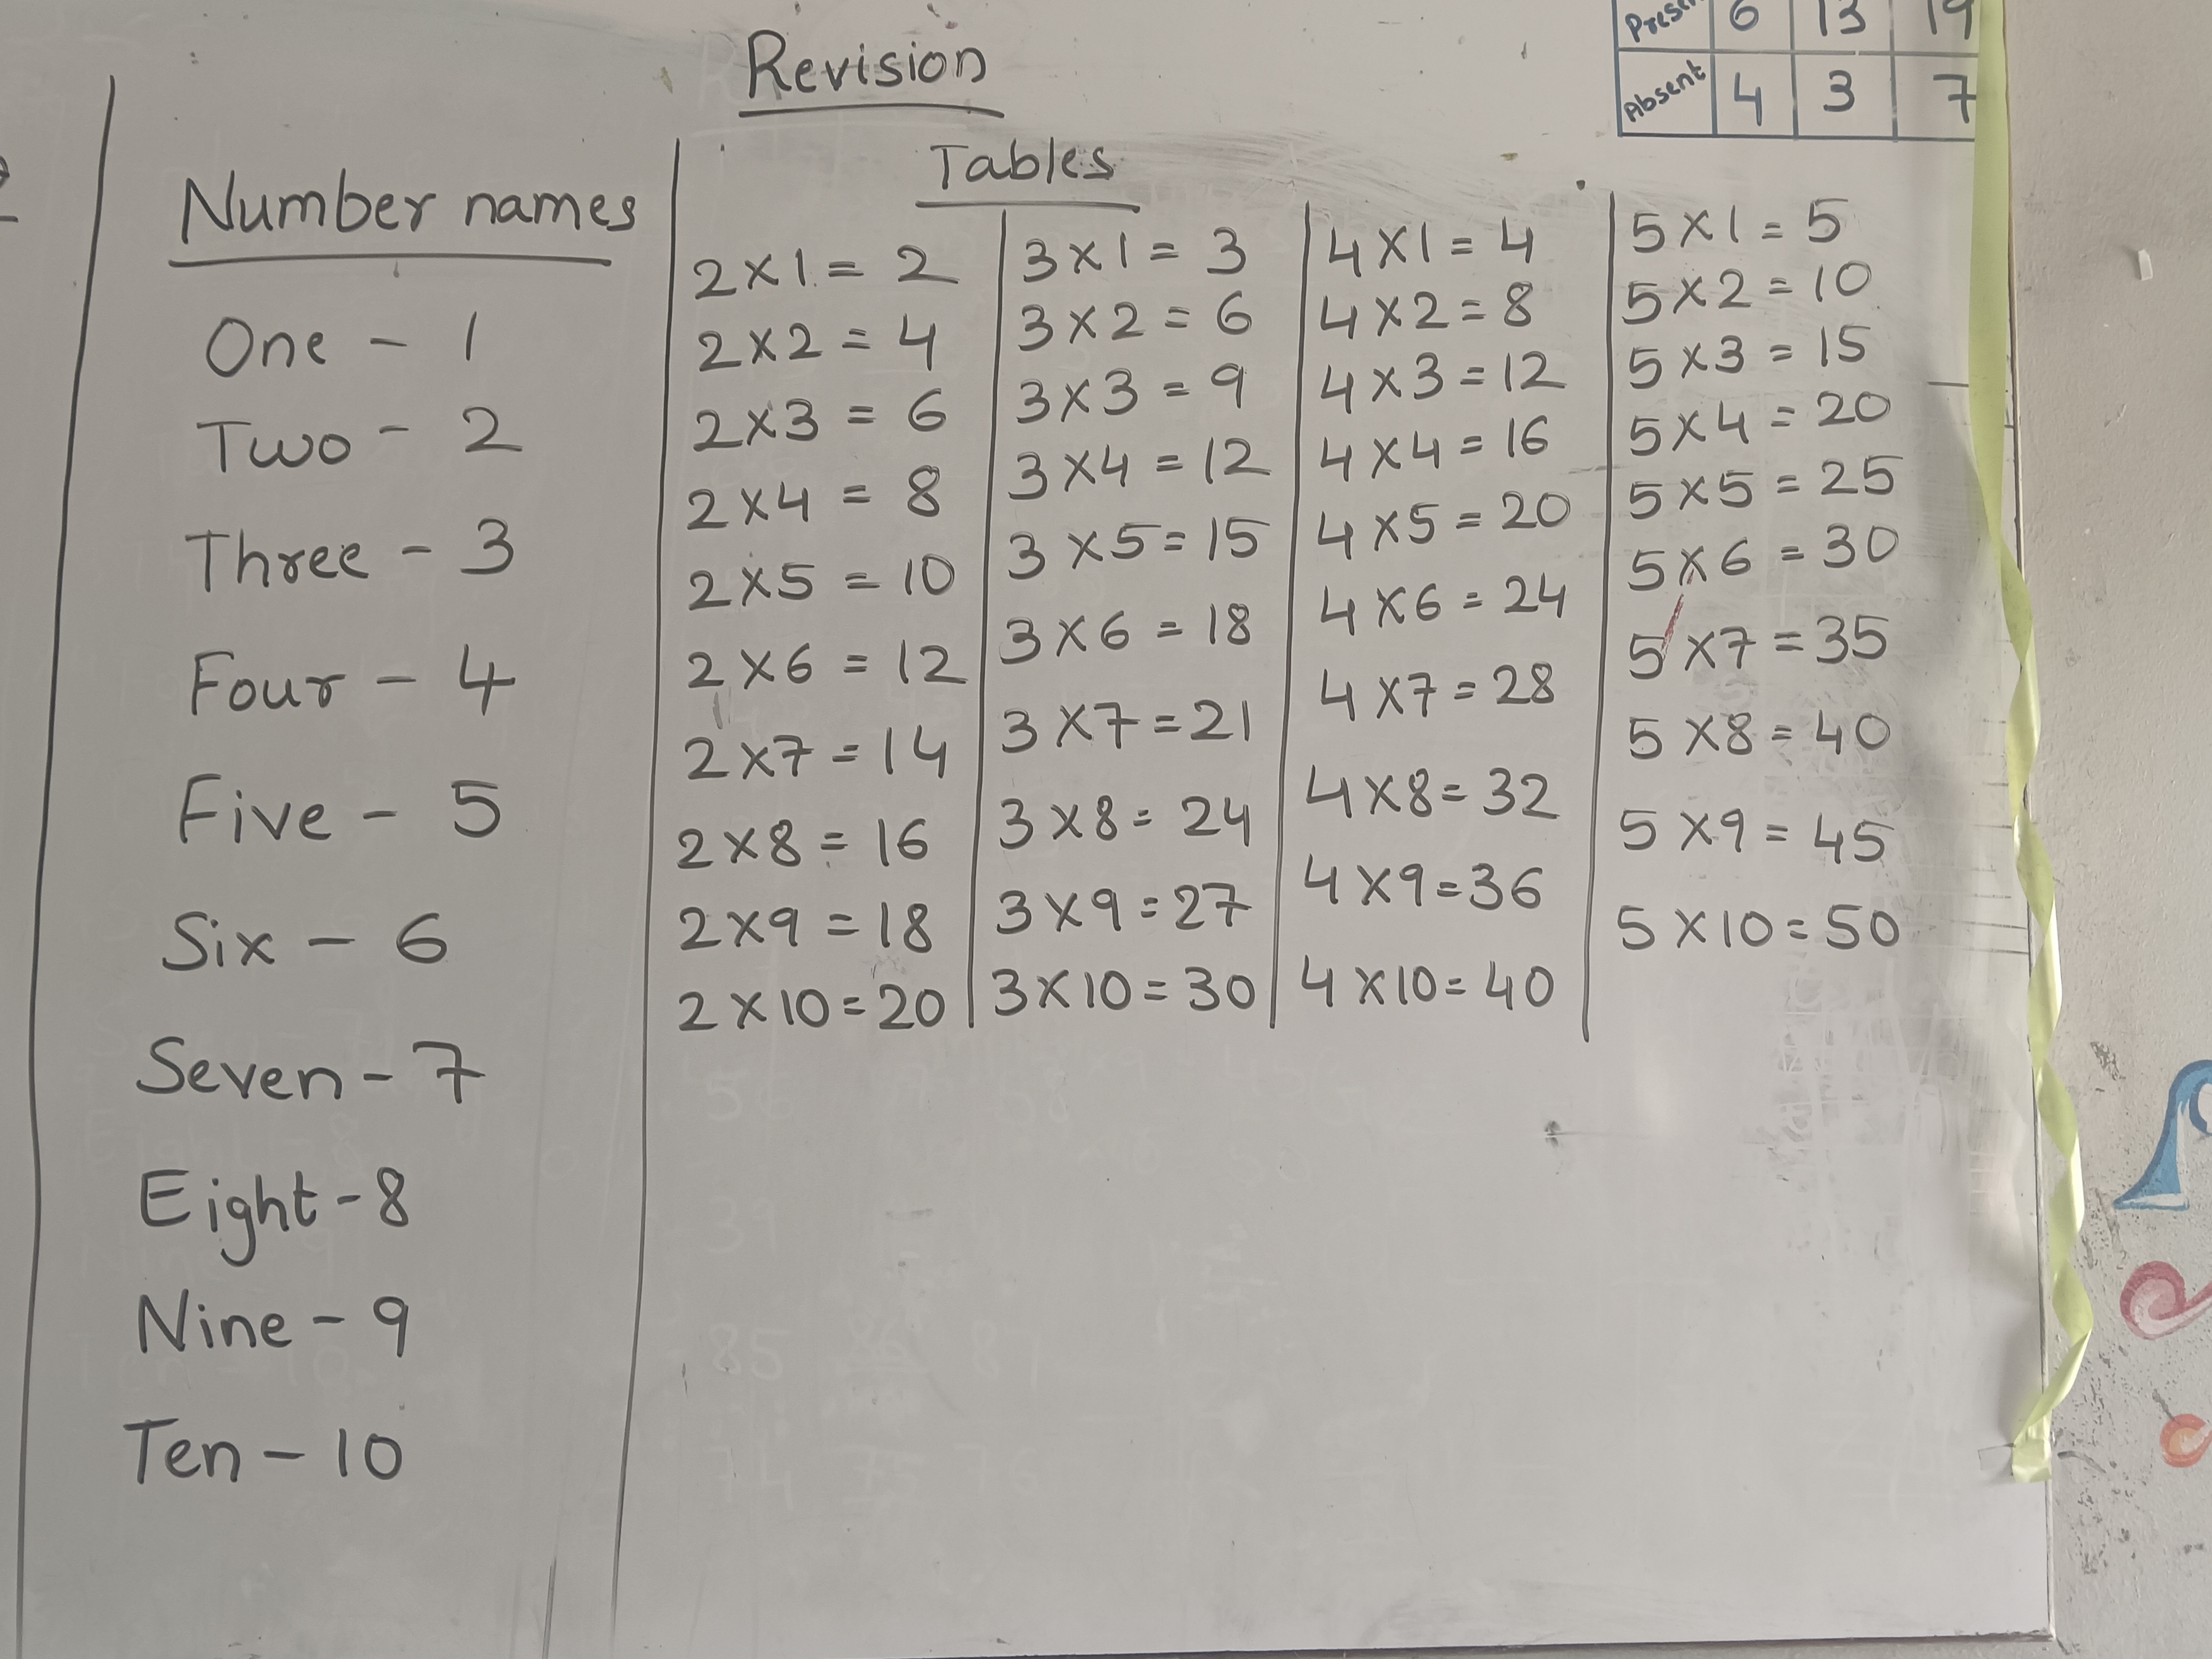 Revision
Present 6 13 19
Absent 4 3 7
Number names
One - 1
Two - 2
Three - 3
Four - 4
Five - 5
Six - 6
Seven - 7
Eight - 8
Nine - 9
Ten - 10
Tables
2 × 1 = 2
2 × 2 = 4
2 × 3 = 6
2 × 4 = 8
2 × 5 = 10
2 × 6 = 12
2 × 7 = 14
2 × 8 = 16
2 × 9 = 18
2 × 10 = 20
3 × 1 = 3
3 × 2 = 6
3 × 3 = 9
3 × 4 = 12
3 × 5 = 15
3 × 6 = 18
3 × 7 = 21
3 × 8 = 24
3 × 9 = 27
3 × 10 = 30
4 × 1 = 4
4 × 2 = 8
4 × 3 = 12
4 × 4 = 16
4 × 5 = 20
4 × 6 = 24
4 × 7 = 28
4 × 8 = 32
4 × 9 = 36
4 × 10 = 40
5 × 1 = 5
5 × 2 = 10
5 × 3 = 15
5 × 4 = 20
5 × 5 = 25
5 × 6 = 30
5 × 7 = 35
5 × 8 = 40
5 × 9 = 45
5 × 10 = 50